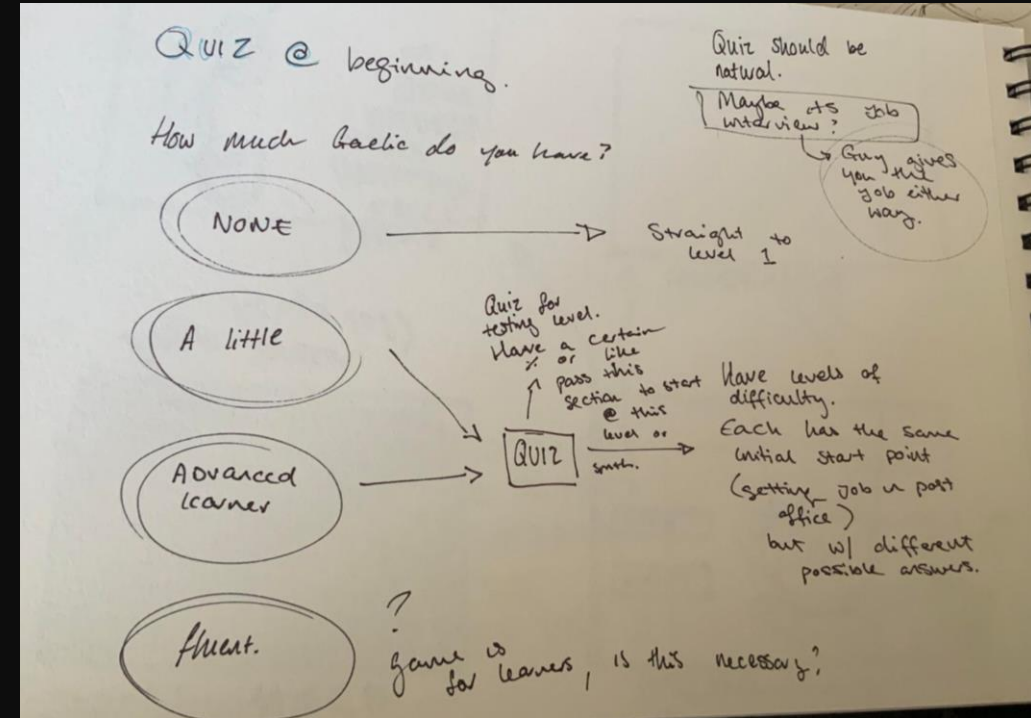 QUIZ @ beginning.
Quiz should be
natural.
Maybe its job
interview?
Guy gives
you the
job either
way.
How much Gaelic do you have?
NONE
Straight to
level 1
A little
Quiz for
testing level.
Have a certain
% or like
pass this
section to start
@ this
level or
smth.
Advanced
learner
QUIZ
Have levels of
difficulty.
Each has the same
initial start point
(getting job in post
office)
but w/ different
possible answers.
fluent.
?
game is
for learners, is this necessary?